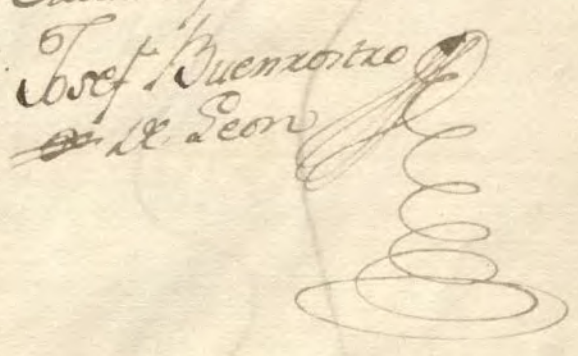 Josef Buenrostro
De Leon